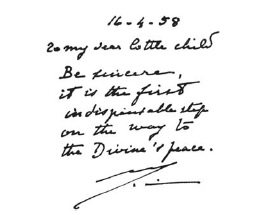 16-4-58
To my dear little child
Be sincere,
it is the first
indispensable step
on the way to
the Divine's peace.